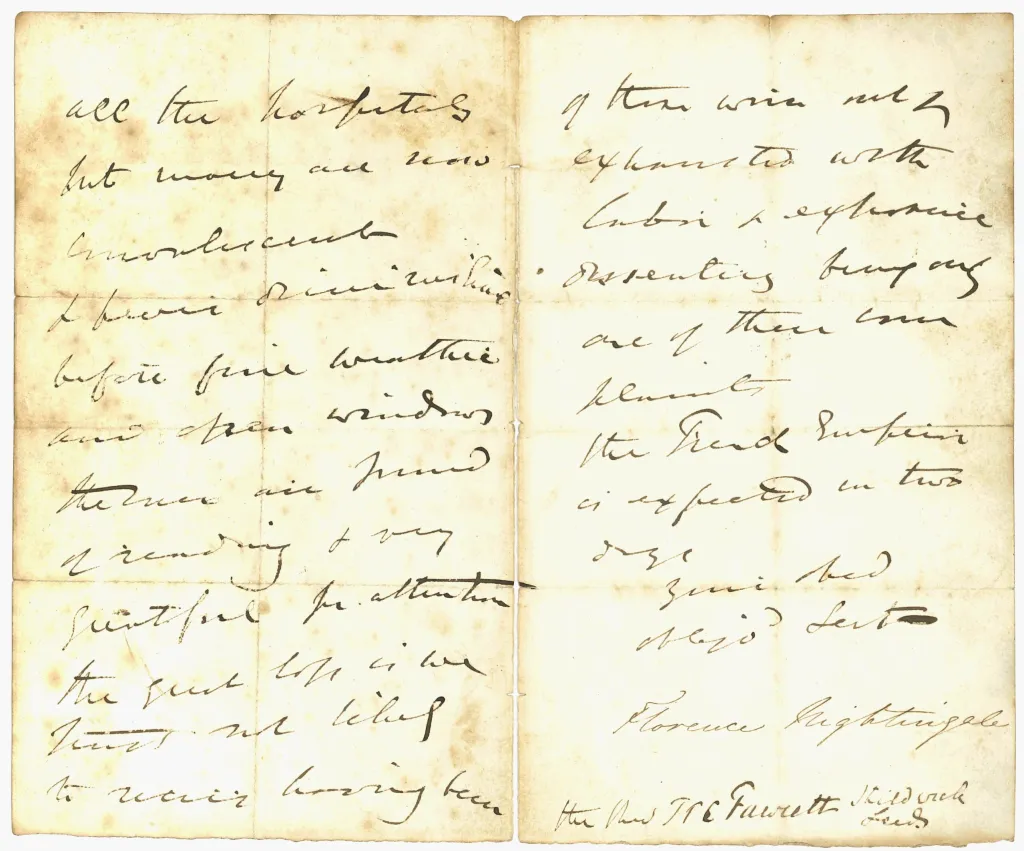 all the hospitals
but many are now
convalescent
& fever diminishing
before fine weather
and open windows
the men are fond
of reading & very
greatful for attention
the great loss is we
trust not likely
to recur having been
of worn out &
exhausted with
labor & exposure
dissentery being only
one of their com
plaints
the Emperor
is expected in two
days
Your obed
obligd Servt
Florence Nightingale
the Revd Fawcett
Leeds